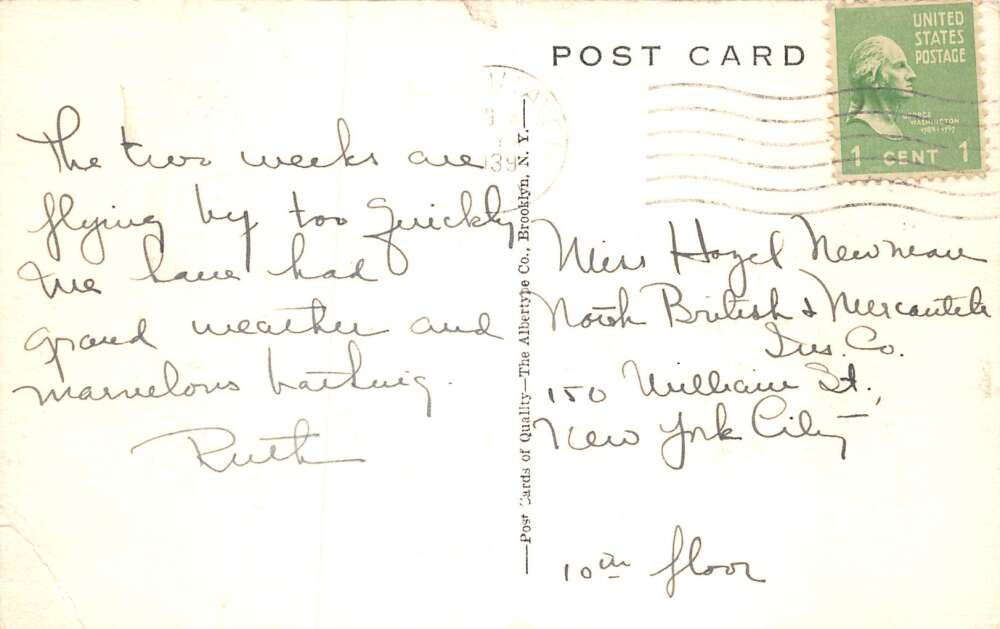 POST CARD
UNITED
STATES
POSTAGE
GEORGE
WASHINGTON
1789-1797
1 CENT 1
939
The two weeks are
flying by too quickly
We have had
grand weather and
marvelous bathing.
Ruth
—Post Cards of Quality—The Albertype Co., Brooklyn, N. Y.—
Miss Hazel Newman
North British & Mercantile
Ins. Co.
150 William St.,
New York City
10th floor